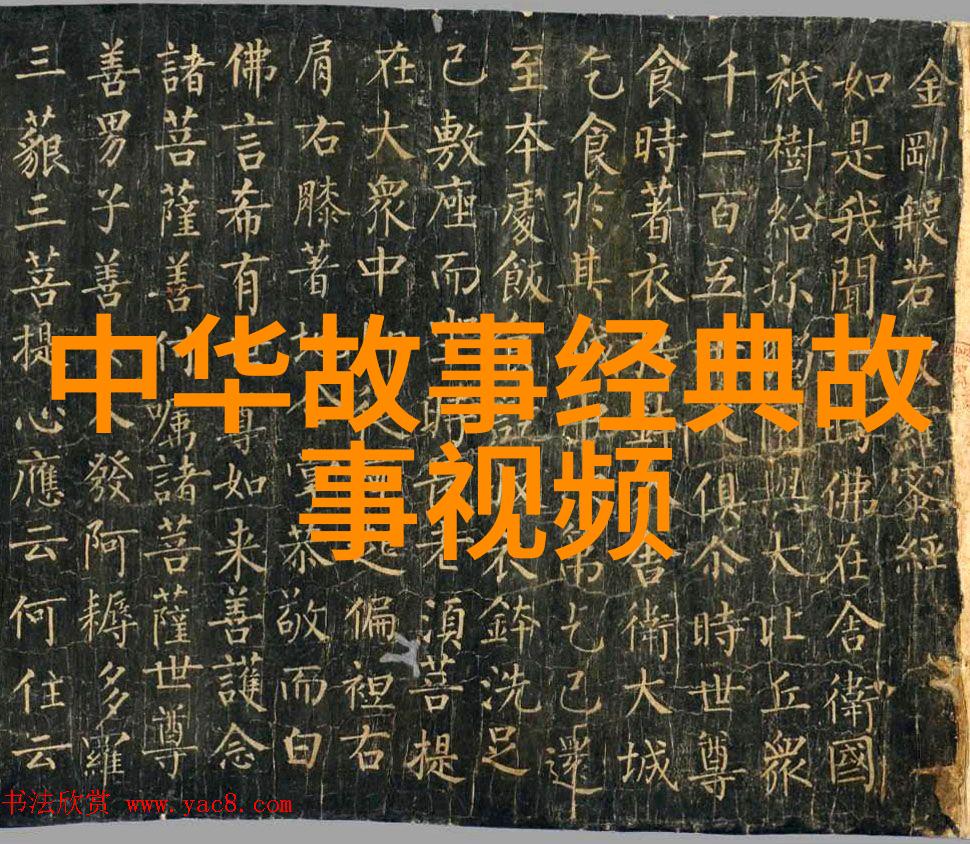 中华故事经典故
事视频
金剛般若蜜經
如是我聞佛在舍衛國
祇樹給孤與大比丘眾
千二百五俱尒時世尊
食時著衣舍衛大城
乞食於其弟乞已還
至本處飯衣鉢洗足
已敷座而長老須菩提
在大眾中起偏袒右
肩右膝著地掌恭敬而白
佛言希有世尊如来善護念
諸菩薩善付囑諸菩薩世尊
善男子善人發阿耨多羅
三藐三菩提心應云何住云
书法欣赏 www.yac8.com